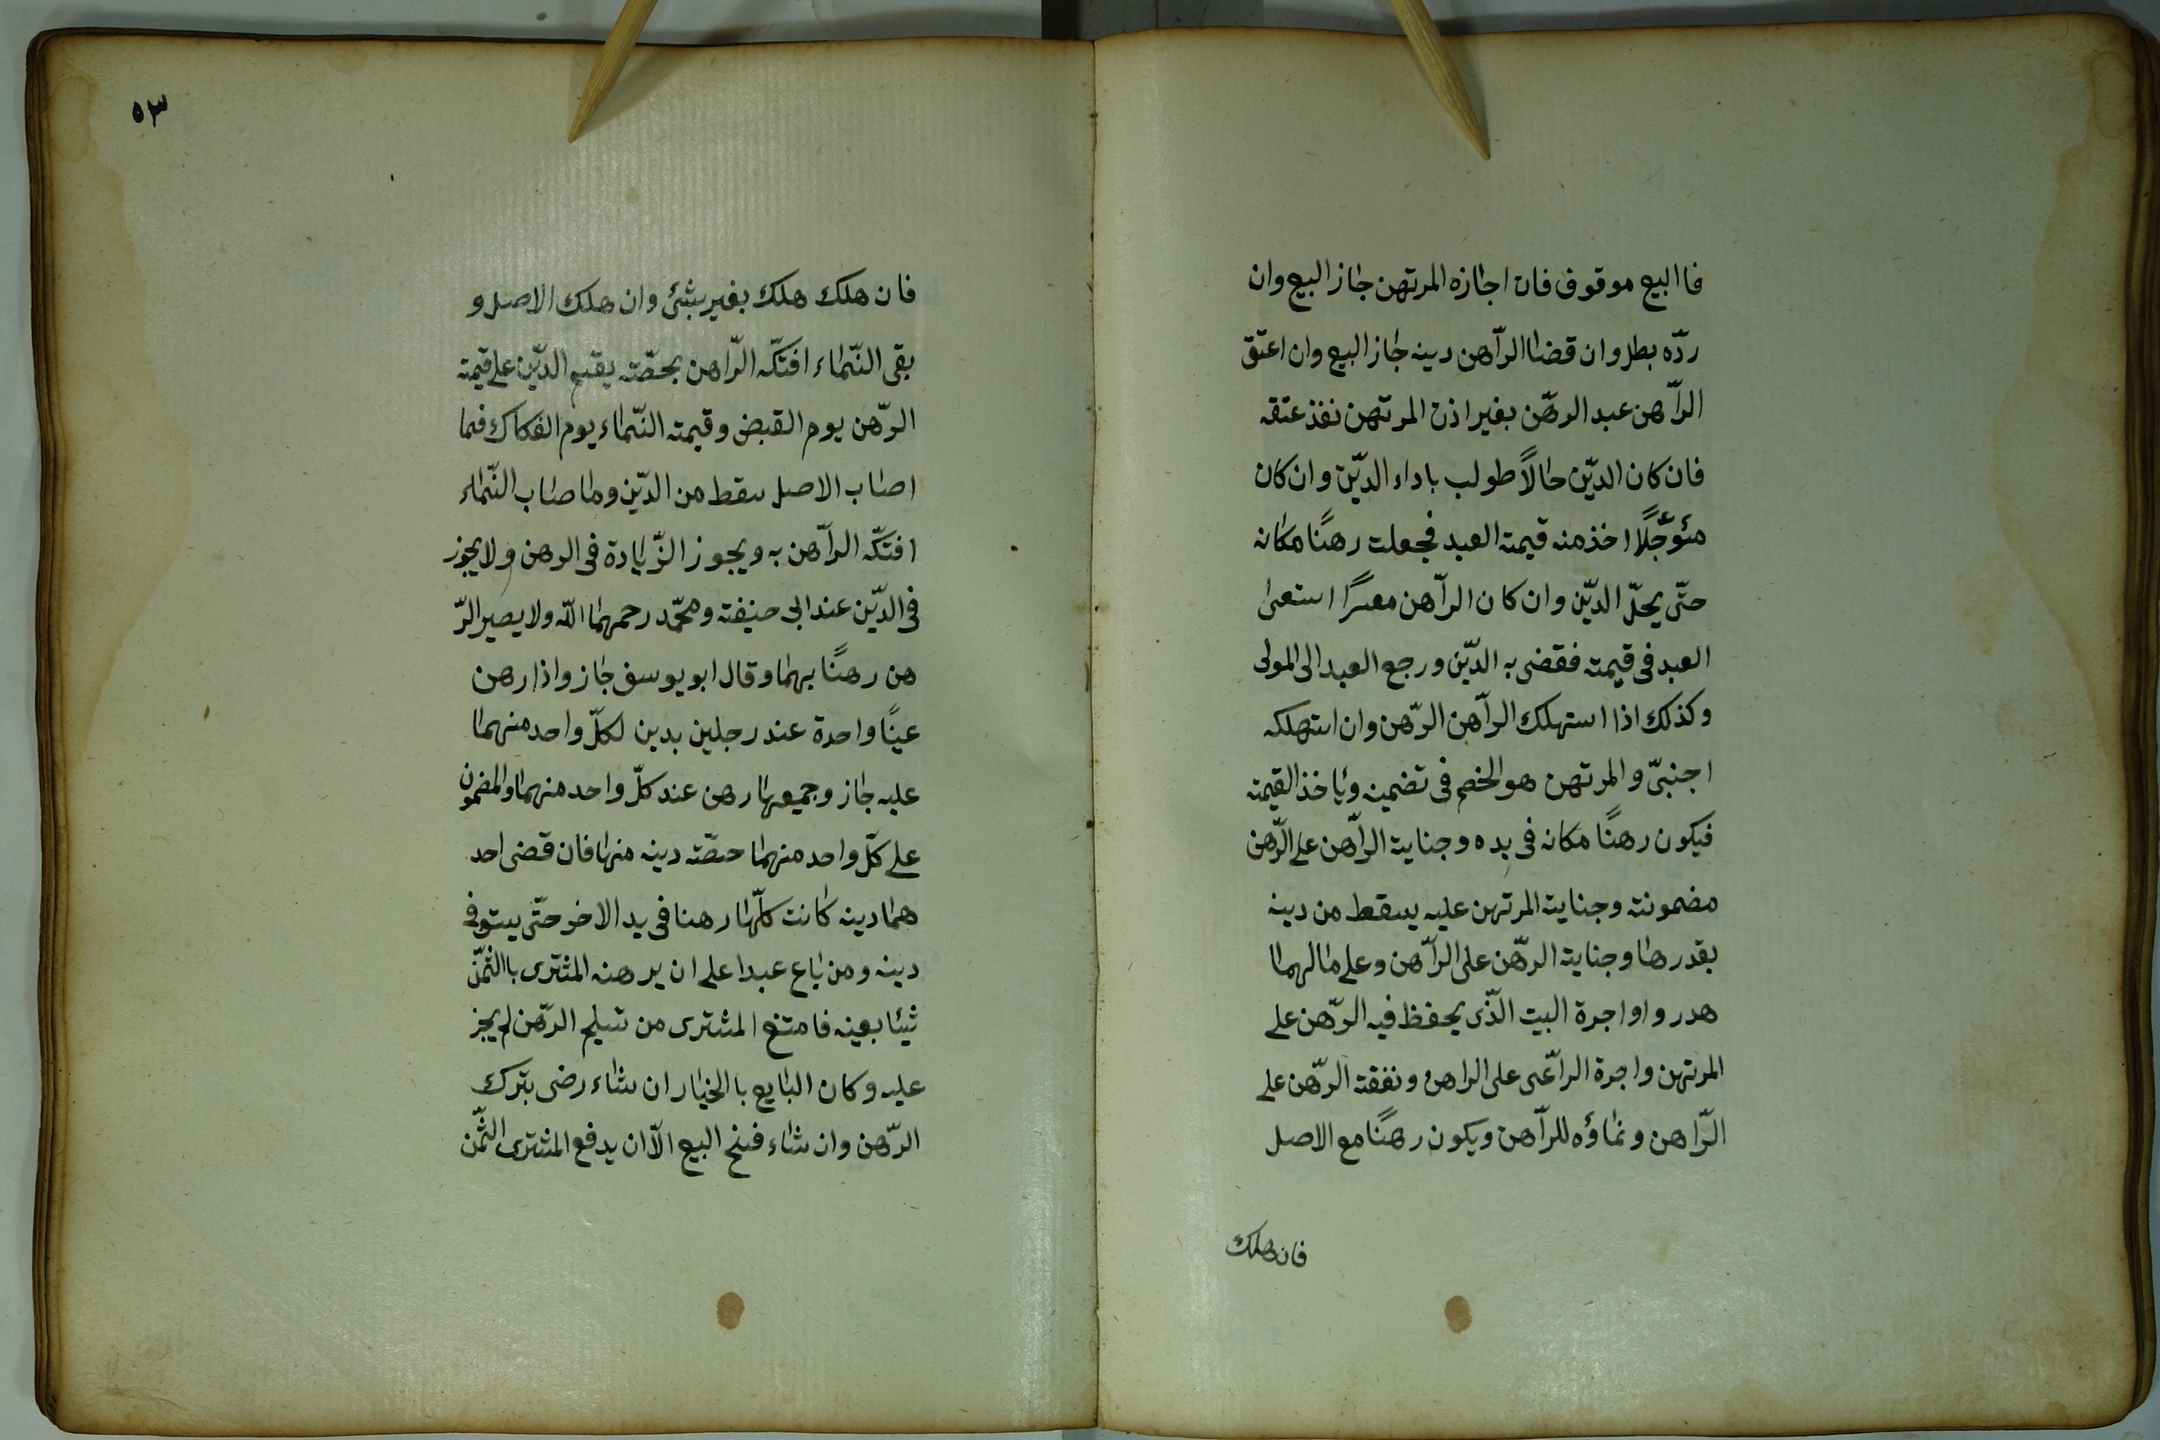 فاالبيع موقوف فان اجازه المرتهن جاز البيع وان
ردّه بطل وان قضا الرّاهن دينه جاز البيع وان اعتق
الرّاهن عبد الرهّن بغير اذن المرتهن نفذ عتقه
فان كان الديّن حالاً طولب باداء الديّن وان كان
مئوجّلاً اخذ منه قيمته العبد فجعلت رهنًا مكانه
حتّى يحلّ الديّن وان كان الرّاهن معسرًا استعىٰ
العبد فى قيمته فقضى به الديّن ورجع العبد الى المولى
وكذلك اذا استهلك الرّاهن الرّهن وان استهلكه
اجنبىّ والمرتهن هو الخصم فى تضمينه وياخذ القيمته
فيكون رهنًا مكانه فى يده وجناية الرّاهن على الرّهن
مضمونته وجناية المرتهن عليه يسقط من دينه
بقدرها وجناية الرهّن على الرّاهن وعلى مالهما
هدر واواجرة البيت الّذى يحفظ فيه الرّهن على
المرتهن واجرة الراعّى على الراهن ونفقته الرّهن على
الرّاهن ونماؤه للرّاهن ويكون رهنًا مع الاصل
فان هلك
٥٣
فان هلك هلك بغير شئ وان هلك الاصل و
بقى النّماء افتكّه الرّاهن بحصّته يقسم الديّن على قيمته
الرّهن يوم القبض وقيمته النّماء يوم الفكاك فما
اصاب الاصل سقط من الديّن وما صاب النّماء
افتكّه الرّاهن به ويجوز الزّيادة فى الرهن ولا يجوز
فى الديّن عند ابى حنيفته ومحمّد رحمهما اللّه ولا يصير الرّ
هن رهنًا بهما وقال ابو يوسف جاز واذا رهن
عينًا واحدة عند رجلين بدين لكلّ واحد منهما
عليه جاز وجميعها رهن عند كلّ واحد منهما والمضمون
على كلّ واحد منهما حصّته دينه منها فان قضى احد
هما دينه كانت كلّها رهنا فى يد الاخر حتّى يستوفى
دينه ومن باع عبدا على ان يرهنه المشترى باالثمّن
شيئا بعينه فامتنع المشترى من تسليم الرّهن لم يجز
عليه وكان البايع باالخيار ان شاء رضى بترك
الرّهن وان شاء فسخ البيع الّا ان يدفع المشترى الثّمن